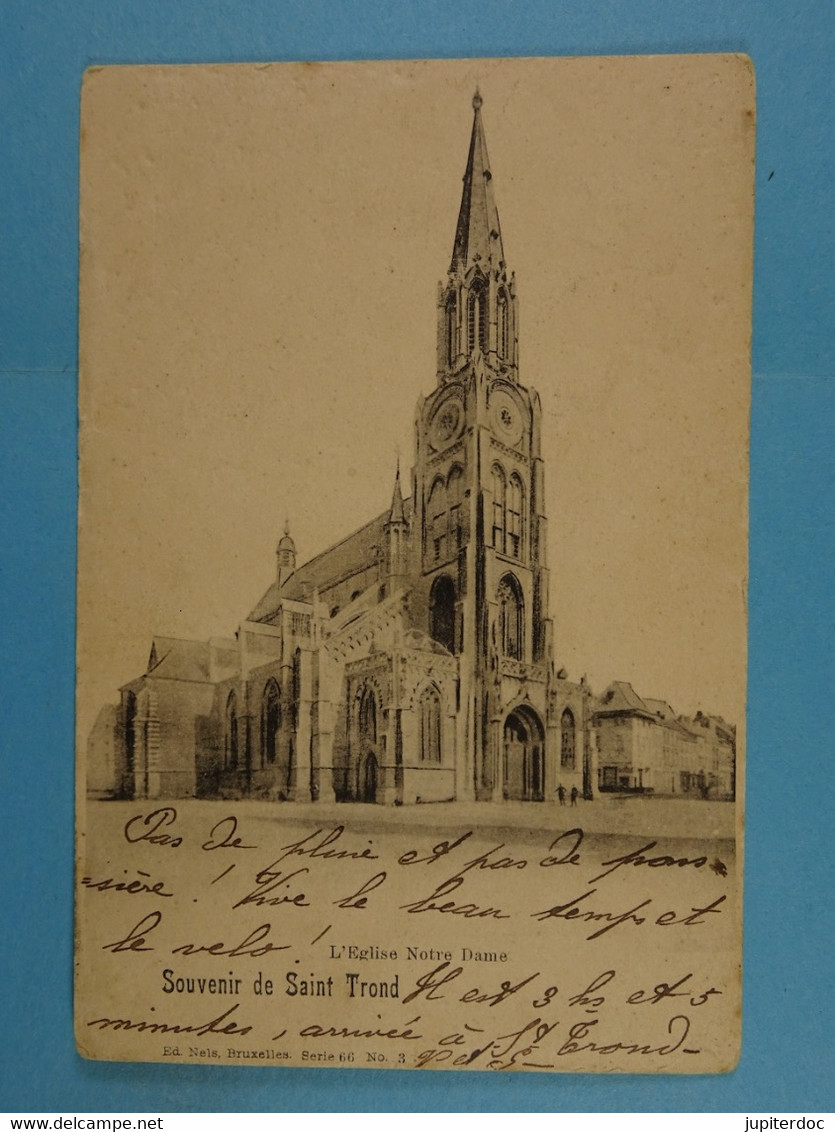 Pas de pluie et pas de pous=
=sière ! Vive le beau temps et
le velo !
L'Eglise Notre Dame
Souvenir de Saint Trond
Il est 3 hs et 5
minutes, arrivée à St Trond-
Ed. Nels, Bruxelles. Serie 66 No. 3
delcampe.net
jupiterdoc